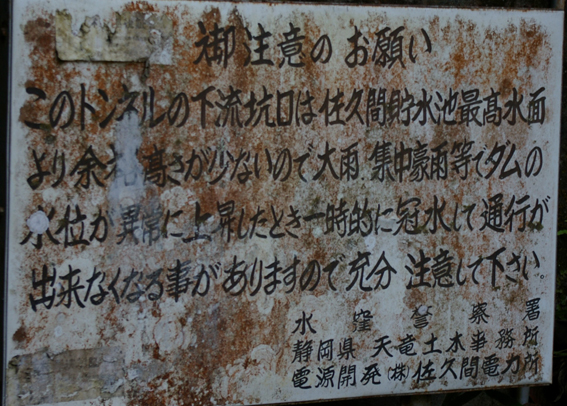 御注意のお願い
このトンネルの下流坑口は佐久間貯水池最高水面
より余裕高さが少ないので大雨 集中豪雨等でダムの
水位が異常に上昇したとき一時的に冠水して通行が
出来なくなる事がありますので充分 注意して下さい。
水窪警察署
静岡県 天竜土木事務所
電源開発㈱佐久間電力所